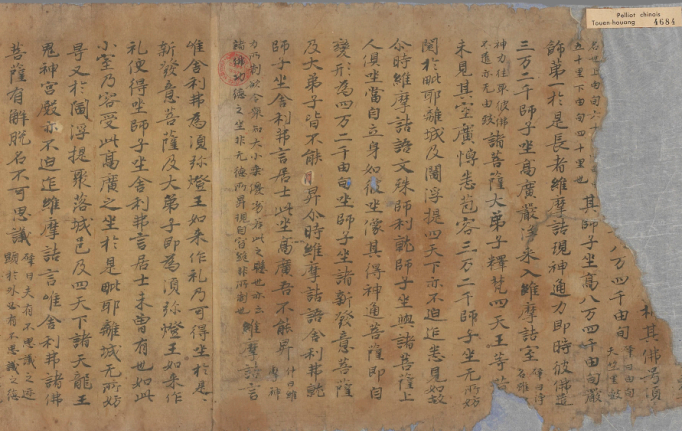 Pelliot chinois
Touen-houang 4684
其佛号須
八万四千由旬 肇曰由旬天竺里數
名也上由旬六十
五十里下由旬四十里也 其師子坐高八万四千由旬嚴
飾第一於是長者維摩詰現神通力即時彼佛遣
三万二千師子坐高廣嚴淨来入維摩詰室 肇曰淨名雖
神力往取彼佛不遣亦无由致 諸菩薩大弟子釋梵四天王等昔所
未見其室廣博悉苞容三万二千師子坐无所妨
閡於毗耶離城及閻浮提四天下亦不迫迮悉見如故
尒時維摩詰語文殊師利就師子坐與諸菩薩上
人俱坐當自立身如彼坐像其得神通菩薩即自
變形為四万二千由旬坐師子坐諸新發意菩薩
及大弟子皆不能昇尒時維摩詰語舍利弗就
師子坐舍利弗言居士此坐高廣吾不能昇 什曰維摩神
維摩詰言
唯舍利弗為須弥燈王如来作礼乃可得坐於是
新發意菩薩及大弟子即為須弥燈王如来作
礼便得坐師子坐舍利弗言居士未曾有也如此
小室乃容受此高廣之坐於是毗耶離城无所妨
㝵又於閻浮提聚落城邑及四天下諸天龍王
鬼神宮殿亦不迫迮維摩詰言唯舍利弗諸佛
菩薩有解脫名不可思議 肇曰夫有不思議之迹顯於外必有不思議之德